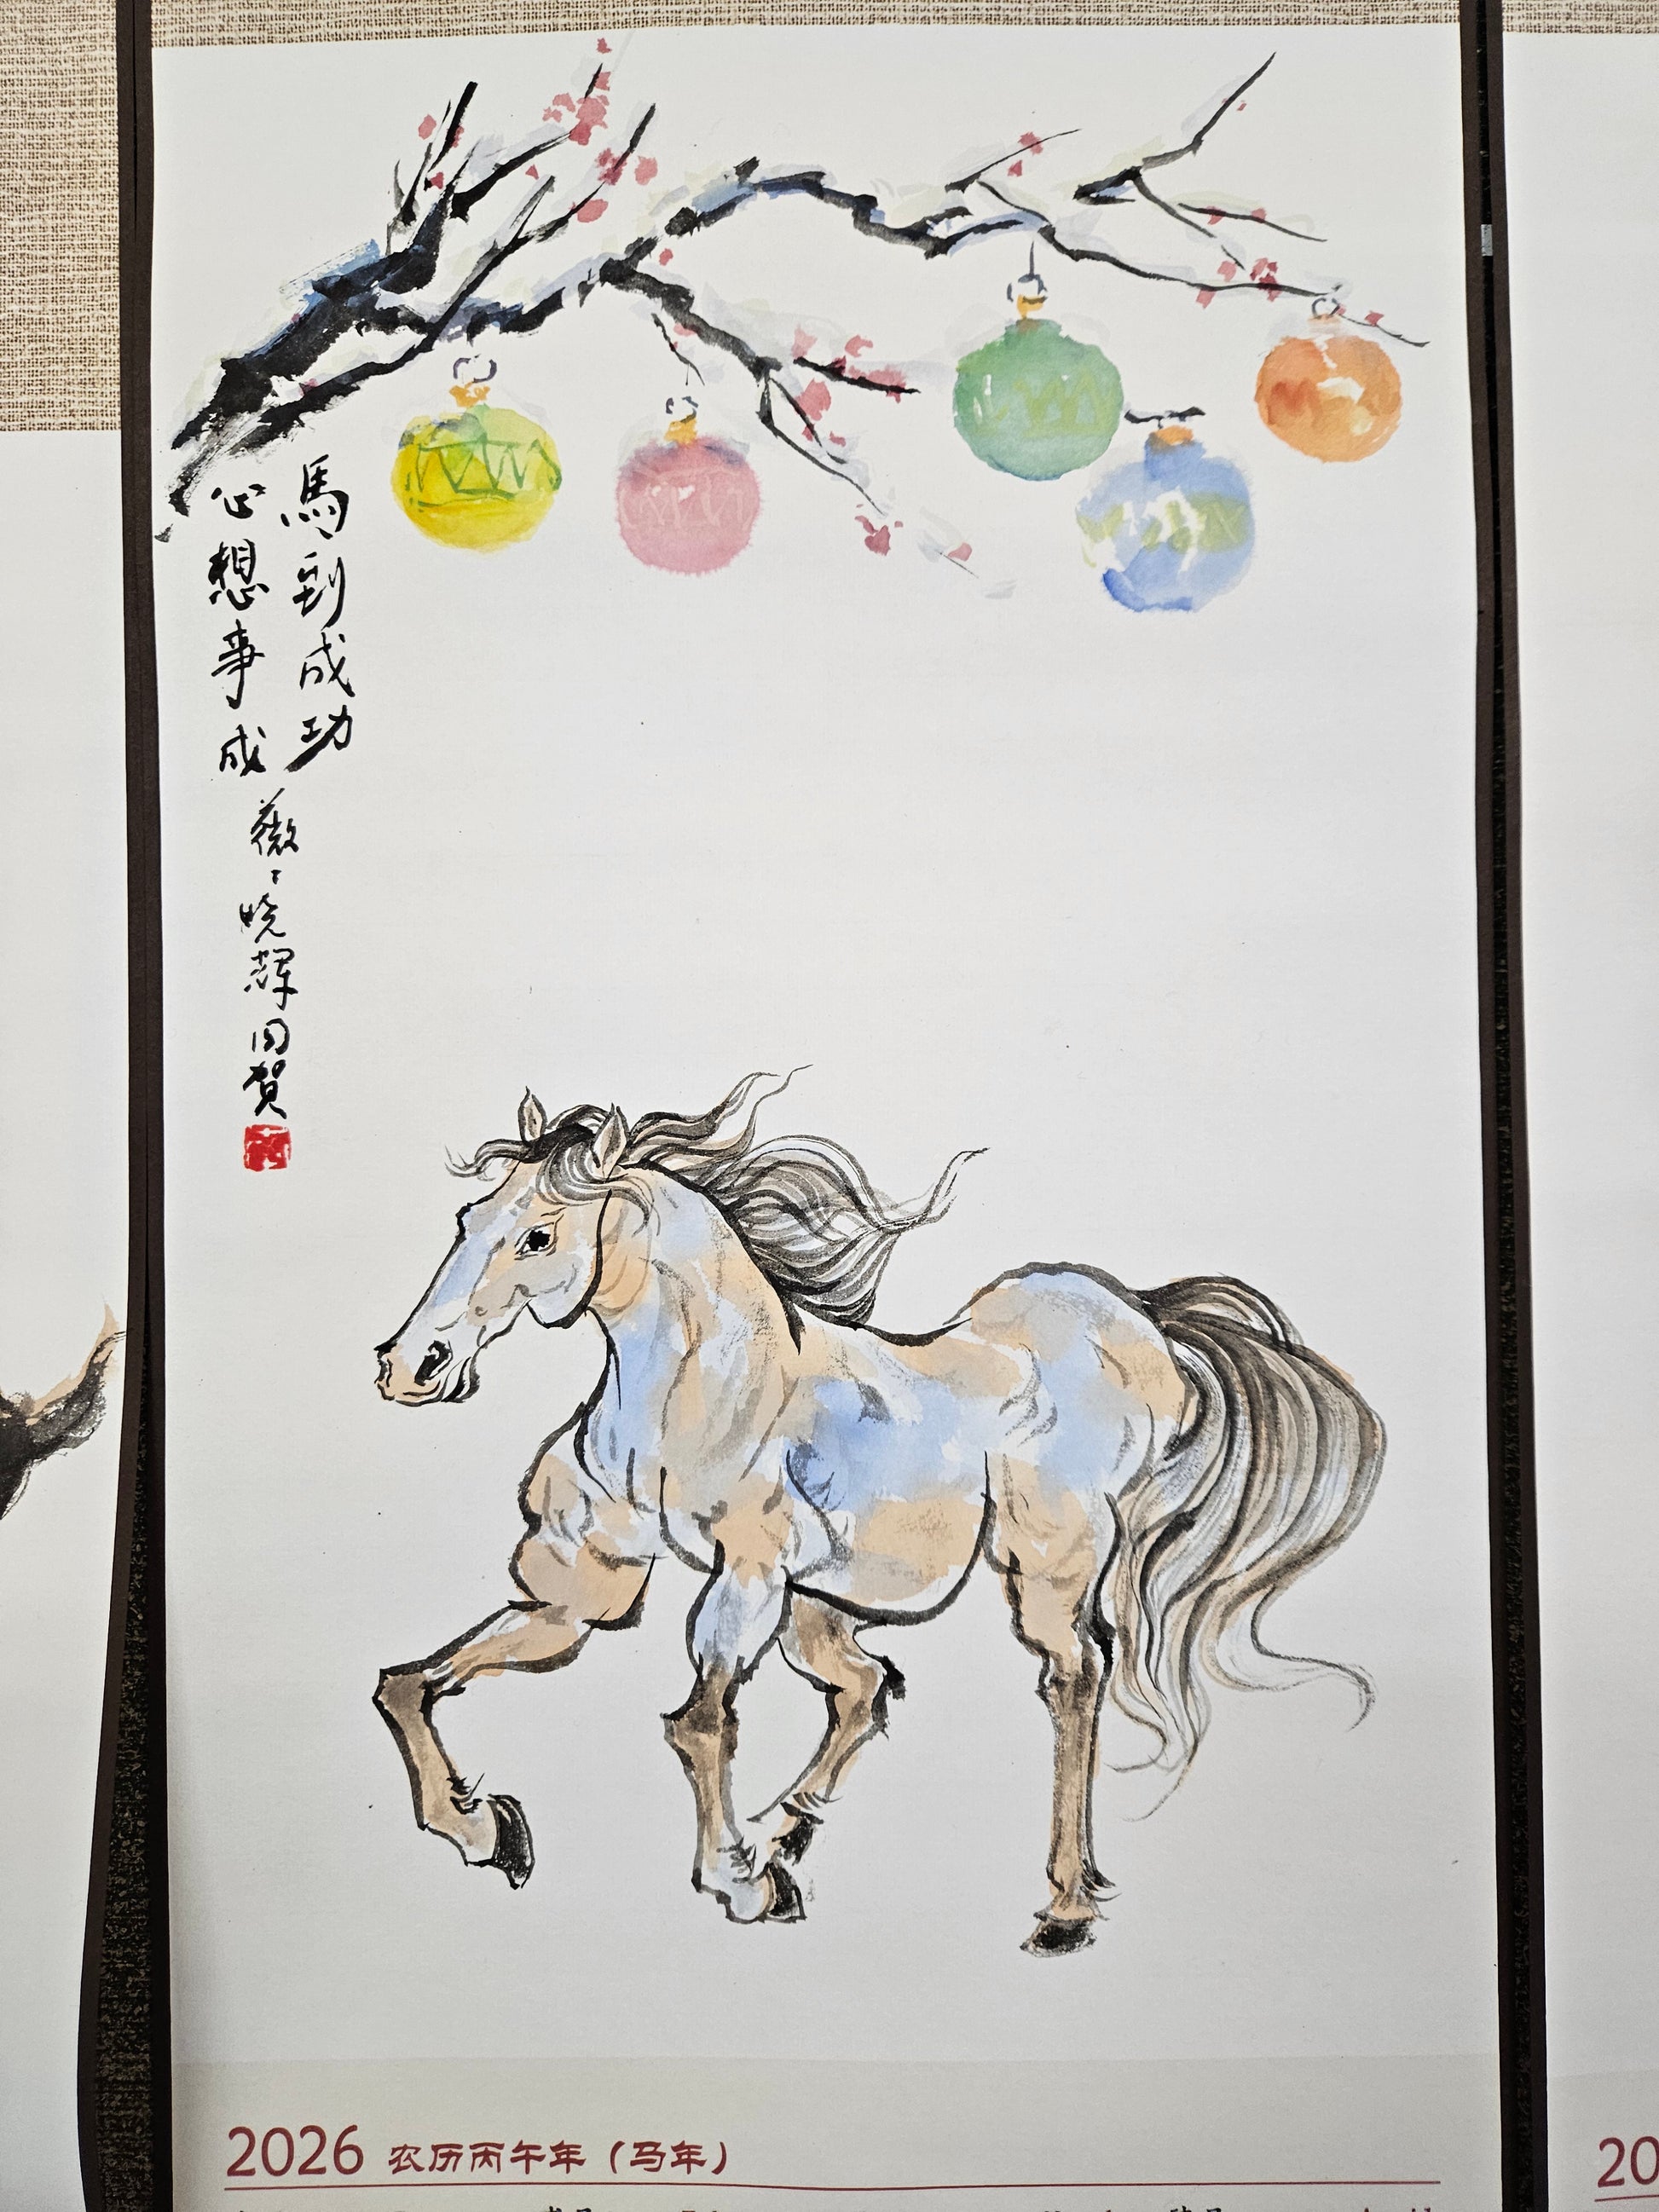 馬到成功
心想事成
薇薇晓輝同贺
2026 农历丙午年（马年）
20